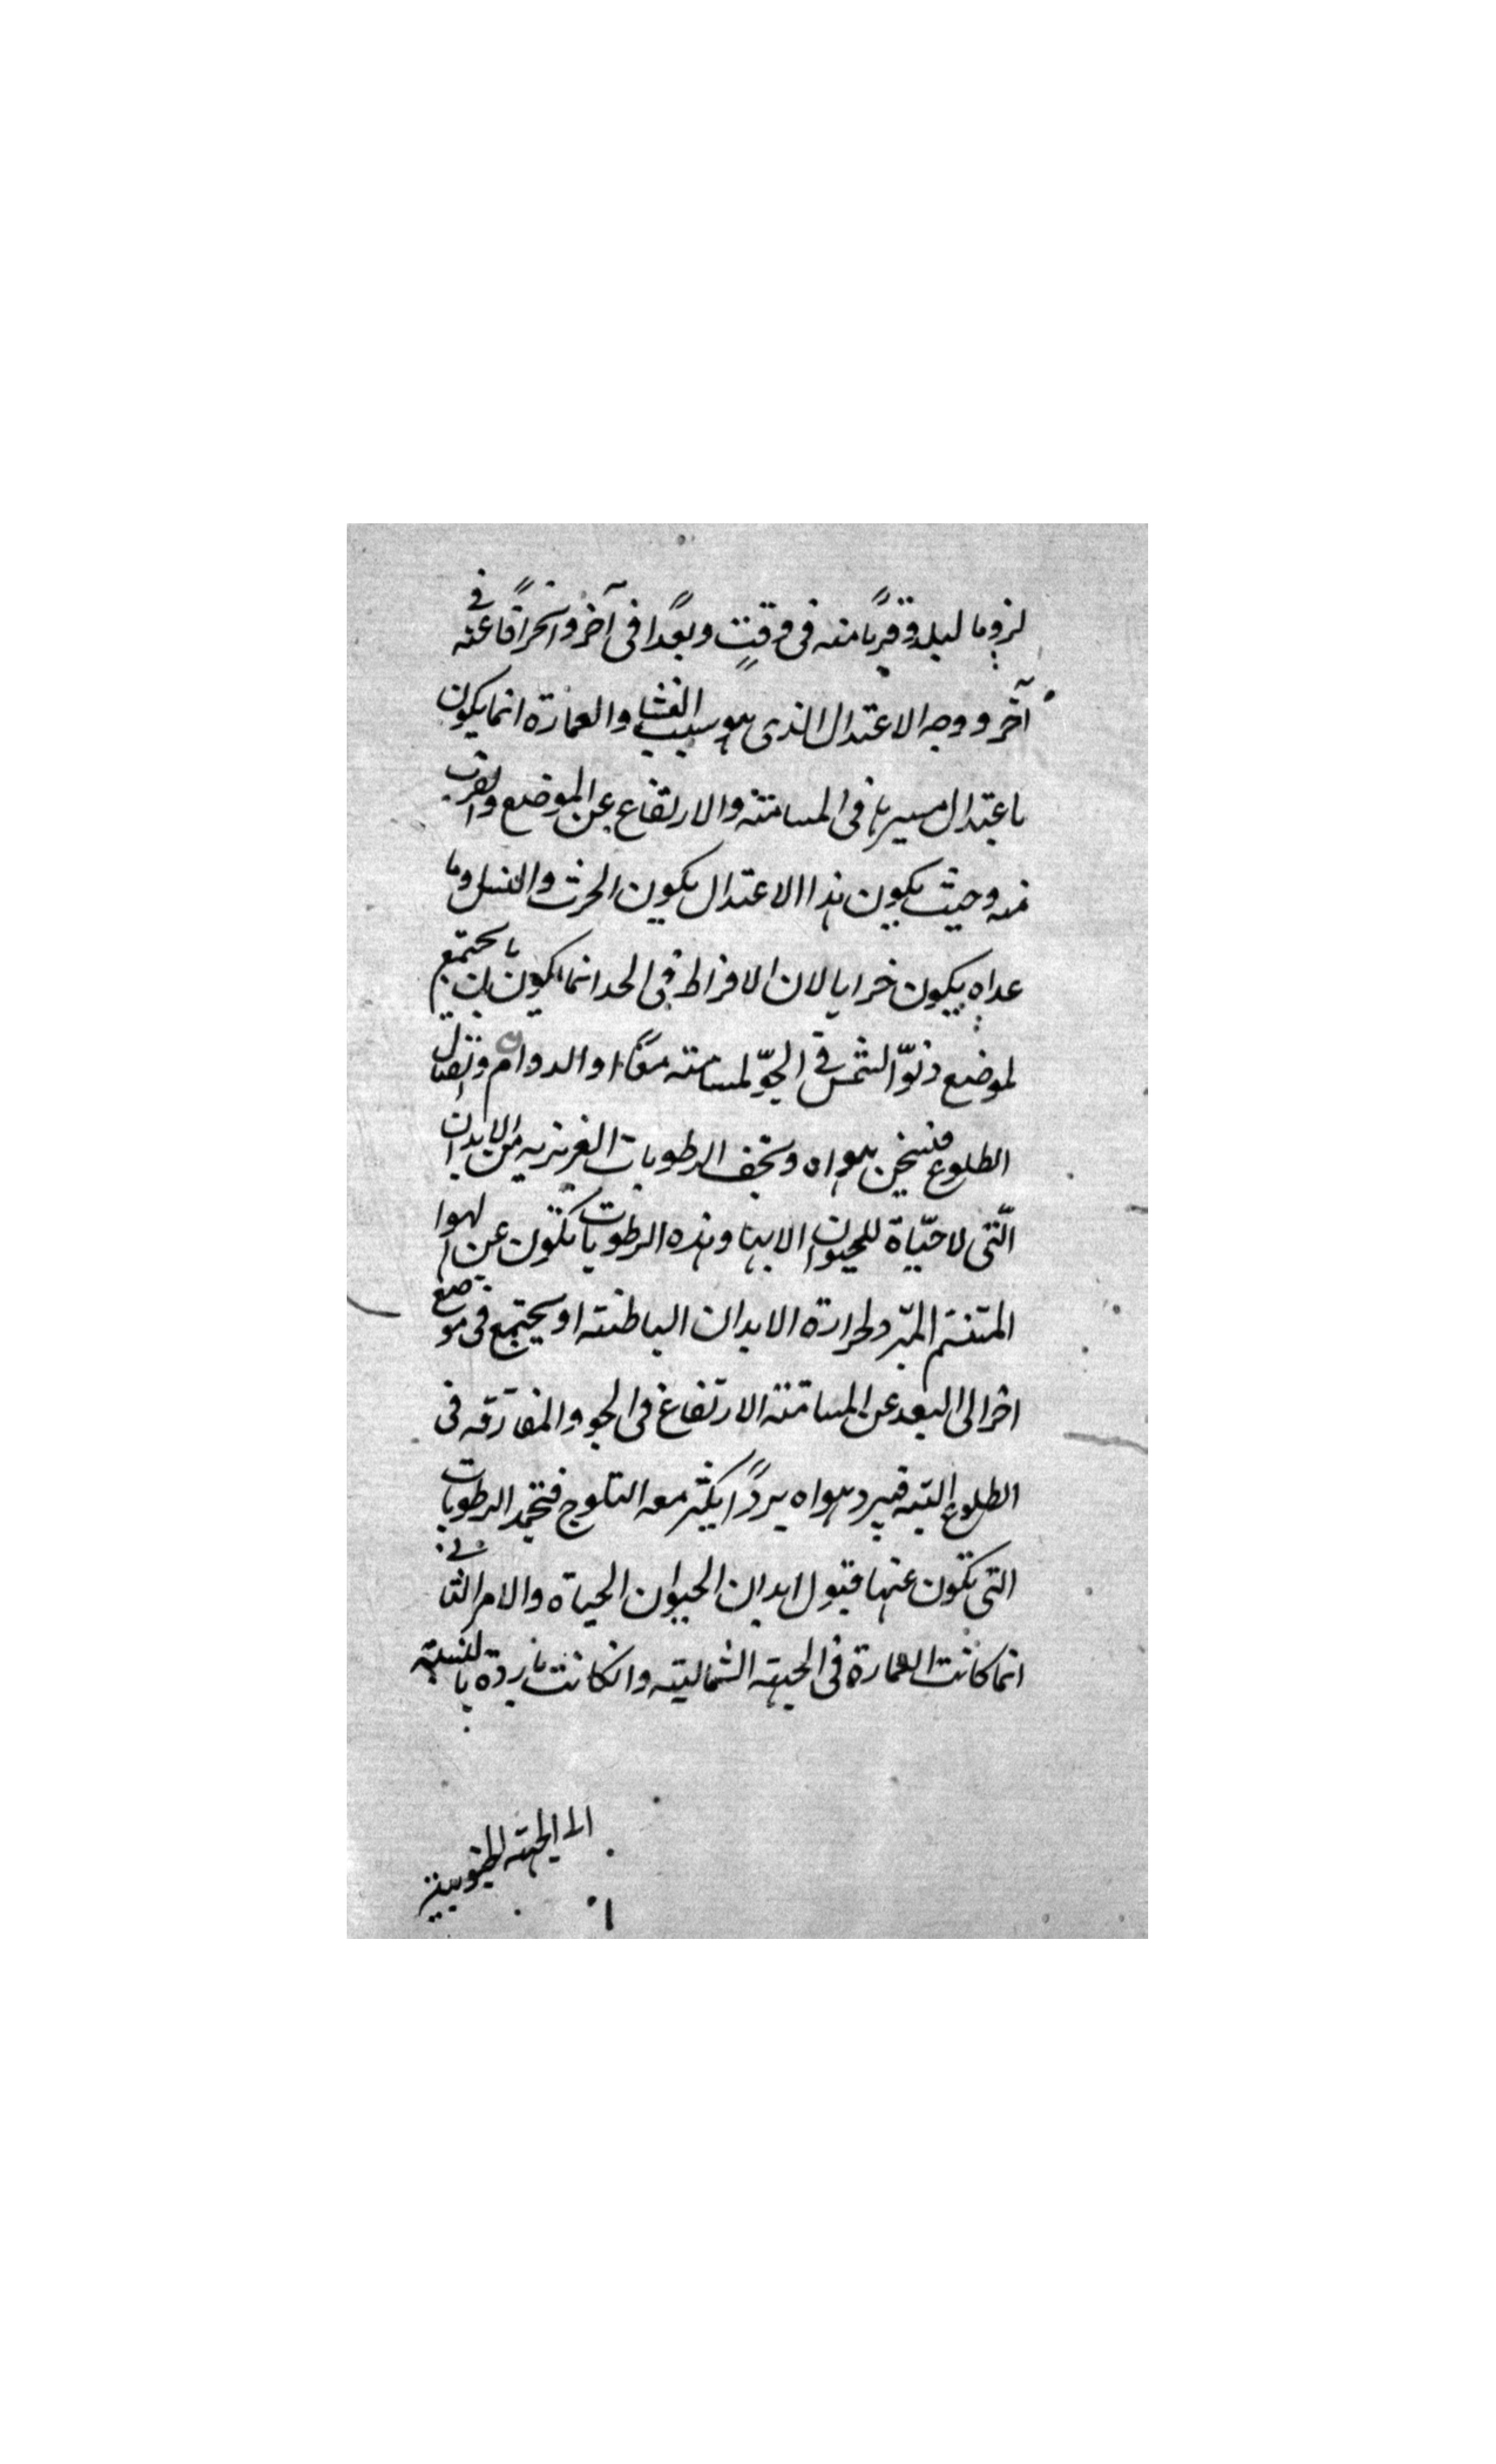 لزوما لبلد وقربًا منه فى وقتٍ وبعدًا فى آخر وانحرافًا عنه فى
آخر ووجه الاعتدال الذى هو سبب النشا والعمارة انما يكون
باعتدال مسيرها فى المسامتة والارتفاع عن الموضع والقرب
منه وحيث يكون هذا الاعتدال يكون الحرث والنسل وما
عداه يكون خرابا لان الافراط فى الحد انما يكون بان يجتمع
لموضع دنوّ الشمس فى الجوّ لمسامته معًا او الدوام واتصال
الطلوع فيسخن هواه وتجف الرطوبات الغريزيه من الابدان
الّتى لا حيّاة للحيوان الا بها وهذه الرطوبات تكون عن الهوا
المتنسم المبرد لحرارة الابدان الباطنة او يجتمع فى موضع
اخر الى البعد عن المسامتة الارتفاع فى الجو والمفارقه فى
الطلوع البتة فيبرد هواه بردًا يكثر معه الثلوج فتجمد الرطوبات
التى تكون عنها قبول ابدان الحيوان الحياة والامر الثانى
انما كانت العمارة فى الجهة الشمالية وان كانت باردة بالنسبة
الى الجهة الجنوبية